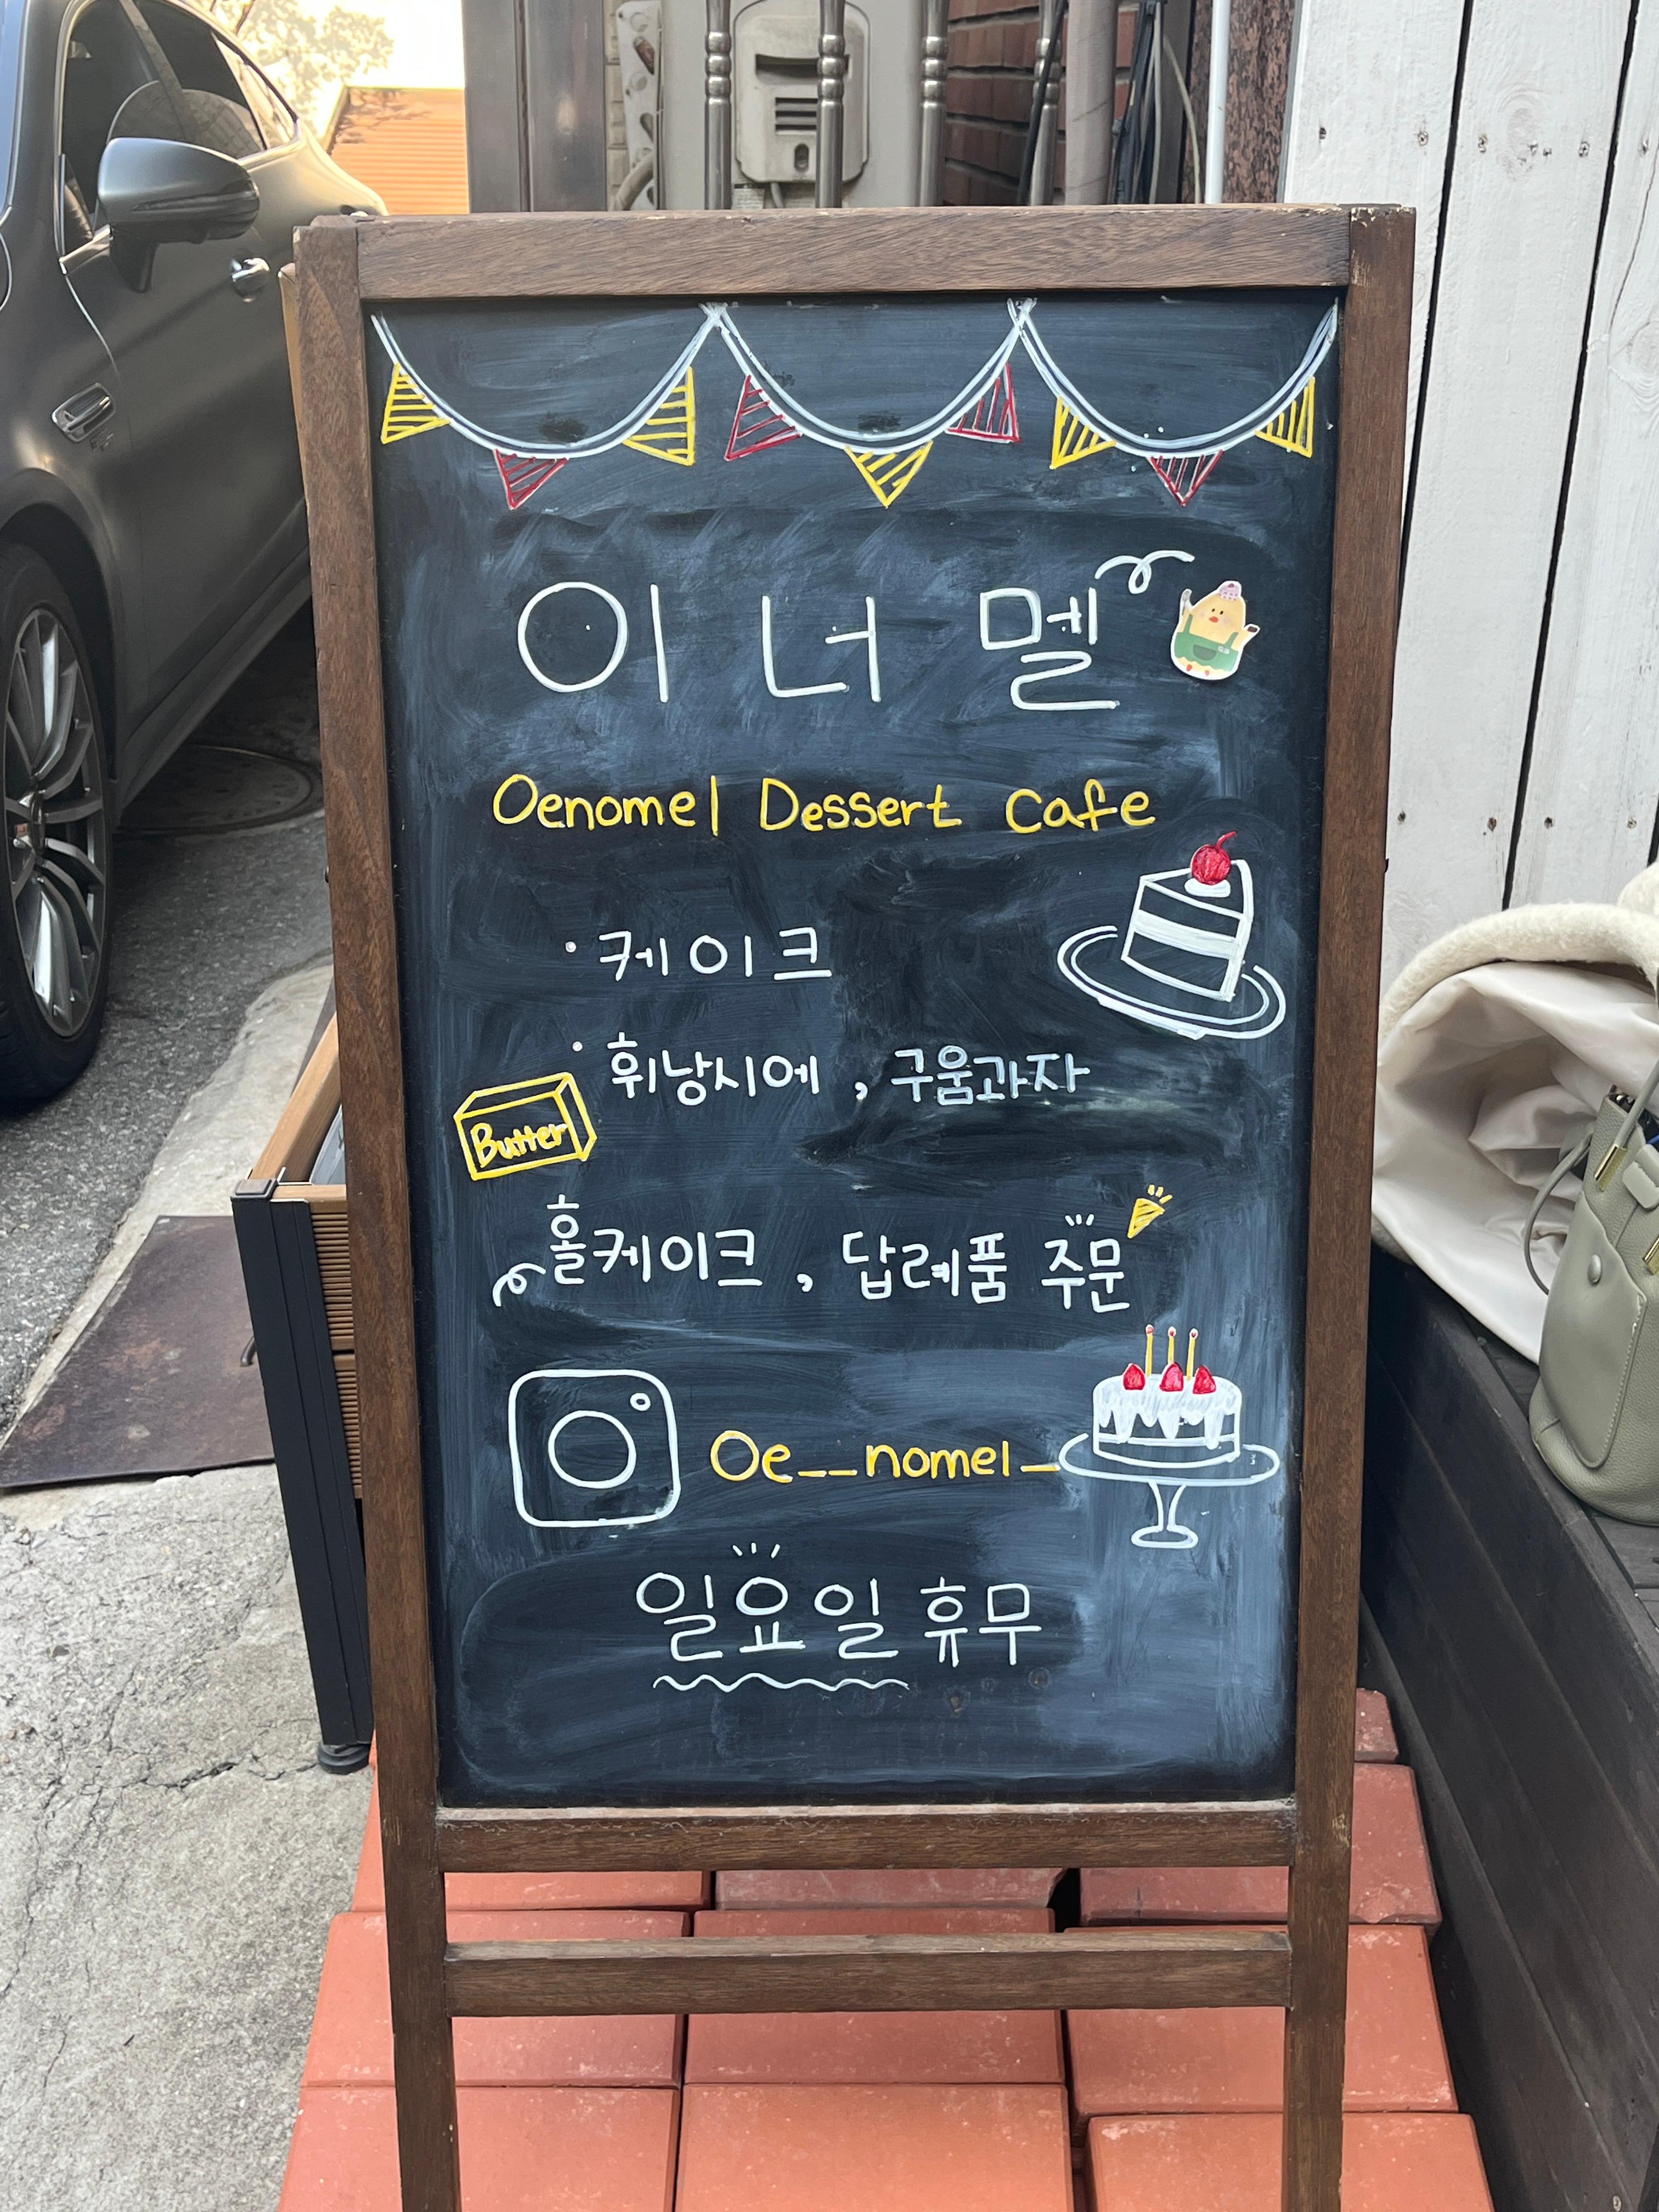 이너멜
Oenomel Dessert Cafe
· 케이크
· 휘낭시에 , 구움과자
Butter
홀케이크 , 답례품 주문
Oe__nomel_
일요일 휴무